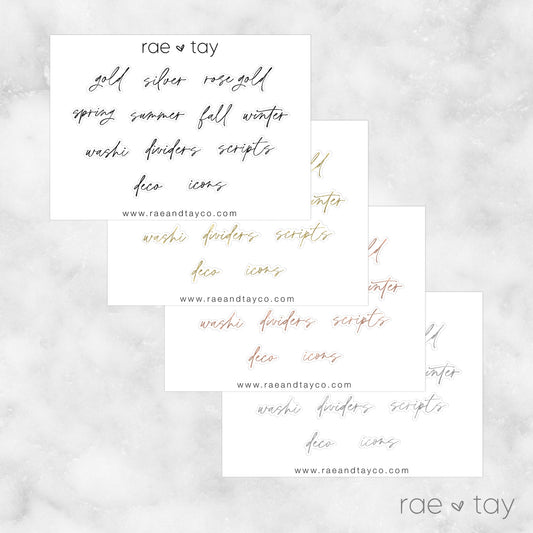 rae tay
gold silver rose gold
spring summer fall winter
washi dividers scripts
deco icons
www.raeandtayco.com
gold
winter
washi dividers scripts
deco icons
www.raeandtayco.com
gold
winter
washi dividers scripts
deco icons
www.raeandtayco.com
gold
winter
washi dividers scripts
deco icons
www.raeandtayco.com
rae tay